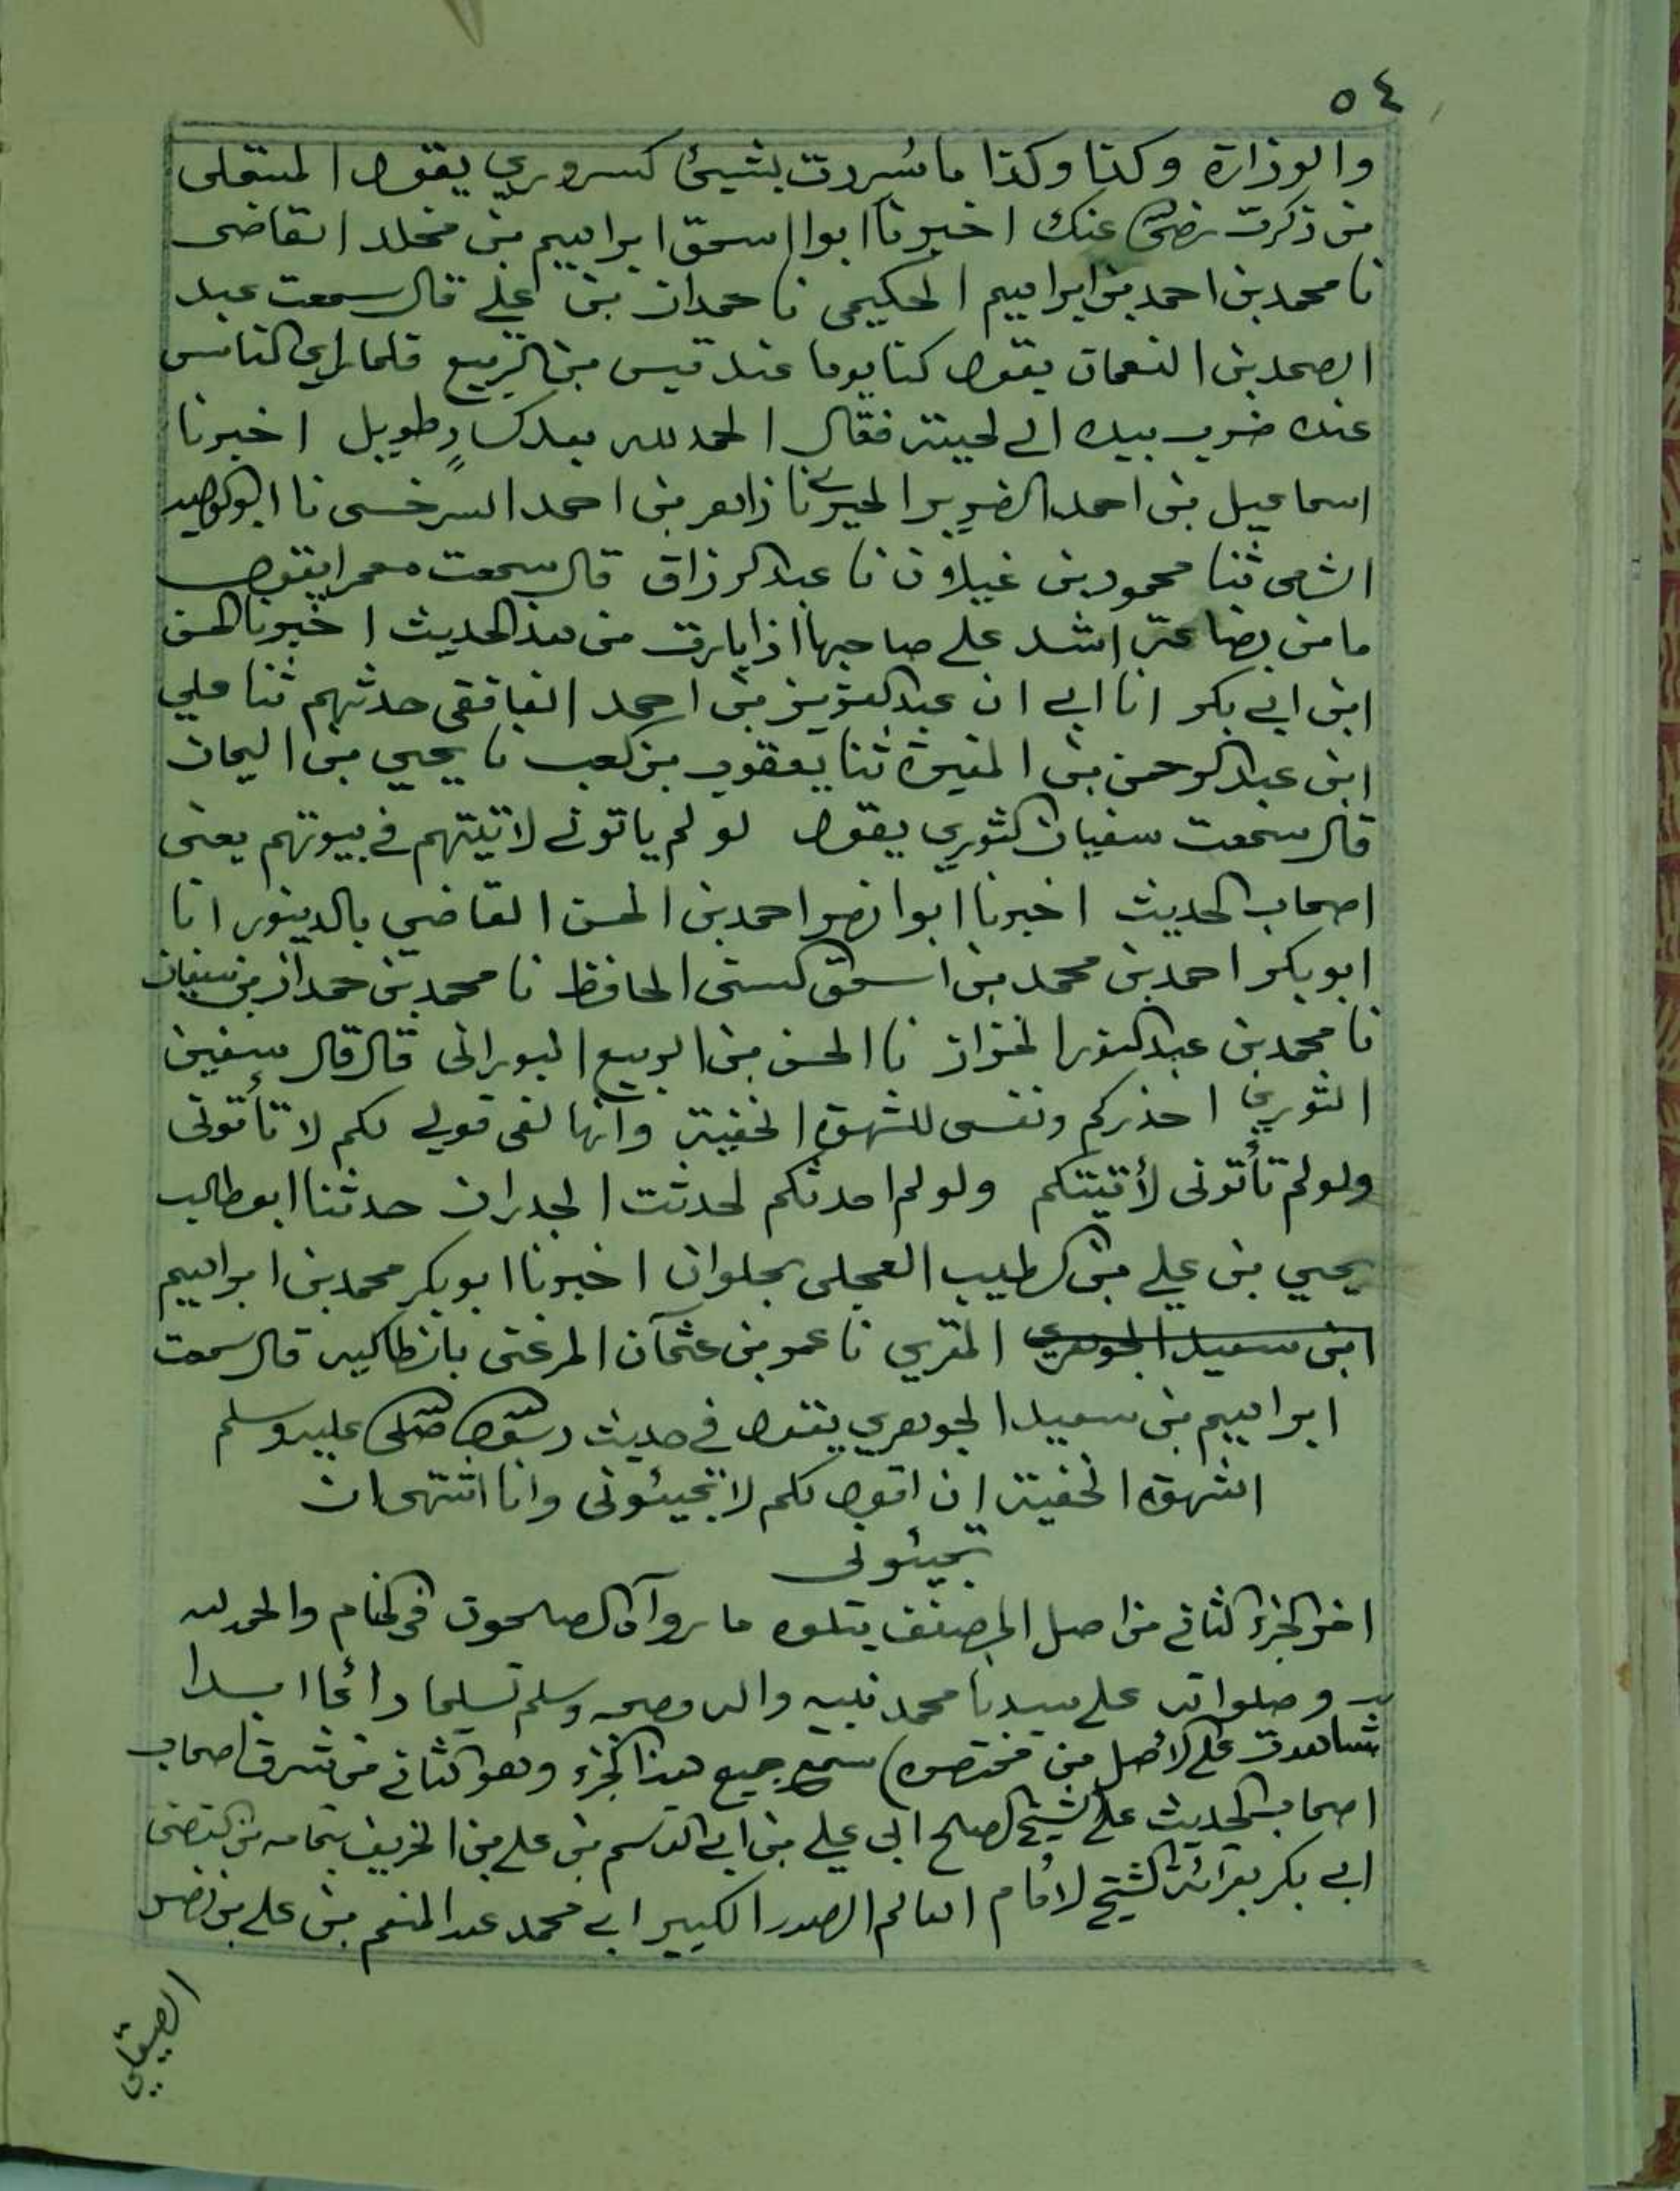 ٥٤
والوزارة وكذا وكذا ما سُررت بشيئ كسروري يقول المتملي
من ذكرت رضي الله عنك اخبرنا ابوا اسحق ابراهيم بن مخلد القاضي
نا محمد بن احمد بن ابراهيم الحكيمى نا حمدان بن علي قال سمعت عبد
الصمد بن النعمان يقول كنا يوما عند قيس بن الربيع فلما راى الناس
عنده ضرب بيده الى لحيته فقال الحمد لله بعد كسادٍ طويل اخبرنا
اسماعيل بن احمد الضرير الحيري نا زاهر بن احمد السرخسى نا ابو لبيد
الشامى ثنا محمود بن غيلان نا عبد الرزاق قال سمعت معمرا يقول
ما من بضاعة اشد على صاحبها اذا بارت من هذ الحديث اخبرنا الحسن
ابن ابى بكر انا ابى ان عبد العزيز بن احمد الغافقى حدثهم ثنا علي
ابن عبد الرحمن بن المغيرة ثنا يعقوب بن كعب نا يحيي بن اليمان
قال سمعت سفيان الثوري يقول لو لم ياتونى لاتيتهم في بيوتهم يعنى
اصحاب الحديث اخبرنا ابوا نصر احمد بن الحسن القاضي بالدينور انا
ابو بكر احمد بن محمد بن اسحق السنى الحافظ نا محمد بن حمدان بن سفيان
نا محمد بن عبد النور الخزاز نا الحسن بن الربيع البورانى قال قال سفين
الثوري احذركم ونفسى للشهوة الخفية وانها لفى قولى لكم لا تأتونى
ولو لم تأتونى لأتيتكم ولو لم احدثكم لحدثت الجدران حدثنا ابو طالب
يحيي بن علي بن الطيب العجلى بحلوان اخبرنا ابو بكر محمد بن ابراهيم
ابن سعيد الجوهري المقري نا عمو بن عثمان المرعنى بانطاكيه قال سمعت
ابراهيم بن سعيد الجوهري يقول في حديث رسول الله صلى الله عليه وسلم
الشهوة الخفية ان اقول لكم لا تجيئونى وانا اشتهى ان
تجيئونى
اخر الجزء الثانى من اصل المصنف يتلوه ما رواه الصالحون فى المنام والحمد لله
وصلواته على سيدنا محمد نبيه واله وصحبه وسلم تسليما دائما ابدا
شاهدت على الأصل من مختصره) سمع جميع هذا الجزء وهو الثانى من شرف اصحاب
اصحاب الحديث على الشيخ الصالح ابى علي بن ابى القاسم بن على بن الخريف بسماعه من القاضى
ابى بكر بقرائة الشيخ الامام العالم الصدر الكبير ابى محمد عبد المنعم بن على بن نصر
الصيقلي